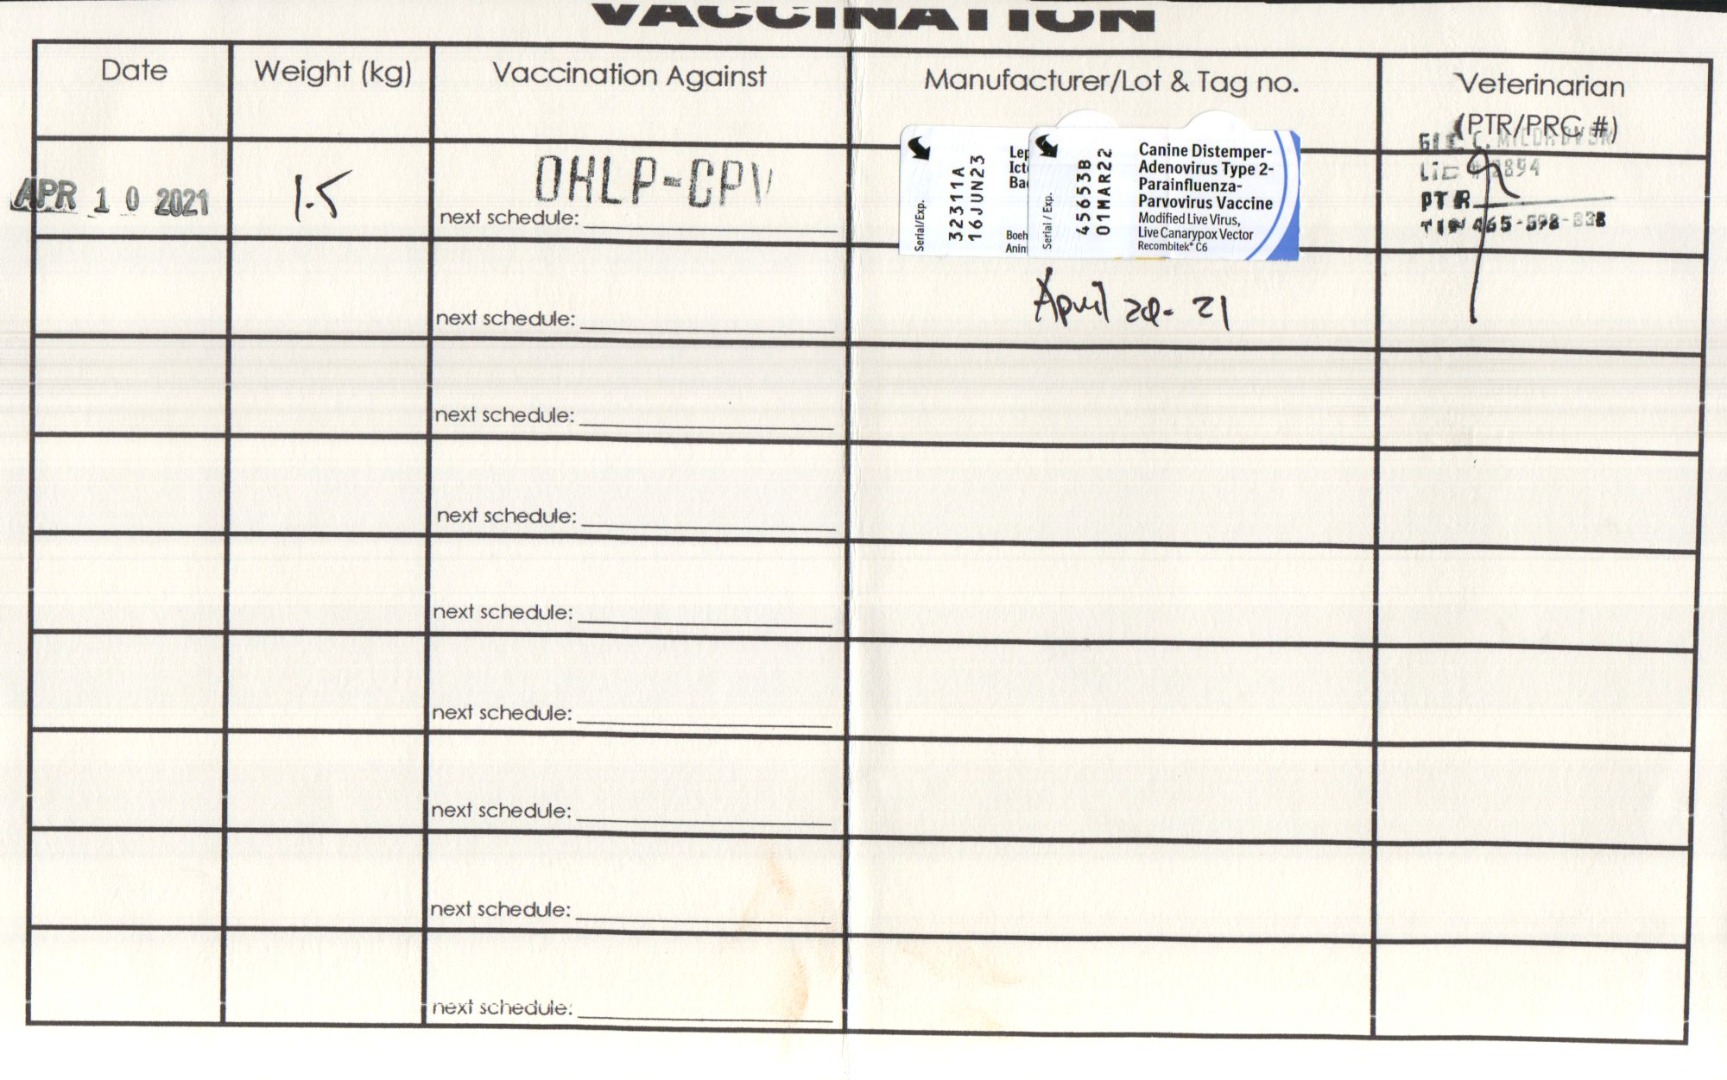 VACCINATION
Date Weight (kg) Vaccination Against Manufacturer/Lot & Tag no. Veterinarian
(PTR/PRC #)
APR 10 2021
1.5
DHLP-CPV
next schedule:
Serial/Exp.
32311A
16JUN23
Lep
Ict
Ba
Boeh
Anin
Serial / Exp.
45653B
01MAR22
Canine Distemper-
Adenovirus Type 2-
Parainfluenza-
Parvovirus Vaccine
Modified Live Virus,
Live Canarypox Vector
Recombitek® C6
Lic # 2894
PTR
TIN 465-598-838
April 20- 21
next schedule:
next schedule:
next schedule:
next schedule:
next schedule:
next schedule:
next schedule:
next schedule: